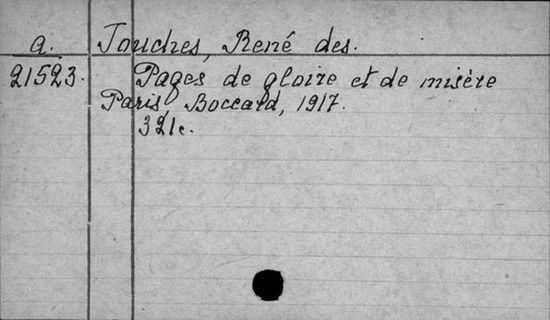 a. Touches, René des.
21523. Pages de gloire et de misère
Paris, Boccard, 1917.
321c.